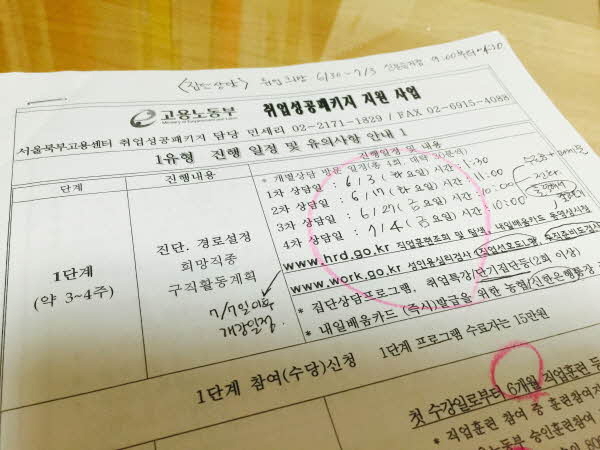 <집단상담> 취업희망 6/30 ~ 7/3 9:00부터
고용노동부 취업성공패키지 지원 사업
Ministry of Employment and Labor
서울북부고용센터 취업성공패키지 담당 민세리 02-2171-1829 / FAX 02-6915-4088
1유형 진행 일정 및 유의사항 안내 1
단계 진행내용 진행일정 및 내용
* 개별상담 방문 일정(총 4회, 대략 30분여)
1차 상담일 : 6/3 (화 요일) 시간 : 1:30
2차 상담일 : 6/17 (화 요일) 시간 : 11:00
3차 상담일 : 6/27 (금 요일) 시간 : 10:00
4차 상담일 : 7/4 (금 요일) 시간 : 10:00
1단계
(약 3~4주)
진단. 경로설정
희망직종
구직활동계획
7/7일 이후
개강일정.
www.hrd.go.kr 직업훈련조회 및 탐색, 내일배움카드 동영상시청
www.work.go.kr 성인용심리검사 (직업선호도)형, 구직준비도검사
* 집단상담프로그램, 취업특강/단기집단등(2회 이상)
* 내일배움카드 (즉시)발급을 위한 농협/신한은행통장
1단계 참여(수당)신청 1단계 프로그램 수료자는 15만원
첫 수강일로부터 6개월 직업훈련
* 직업훈련 참여 중 훈련참여자
승인훈련참여